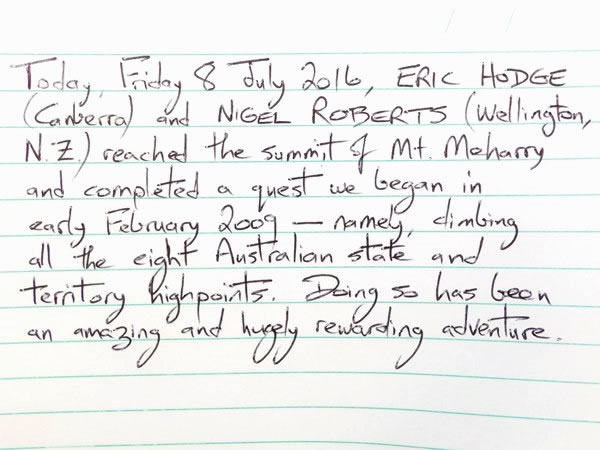 Today, Friday 8 July 2016, ERIC HODGE
(Canberra) and NIGEL ROBERTS (Wellington,
N.Z.) reached the summit of Mt. Meharry
and completed a quest we began in
early February 2009 — namely, climbing
all the eight Australian state and
territory highpoints. Doing so has been
an amazing and hugely rewarding adventure.